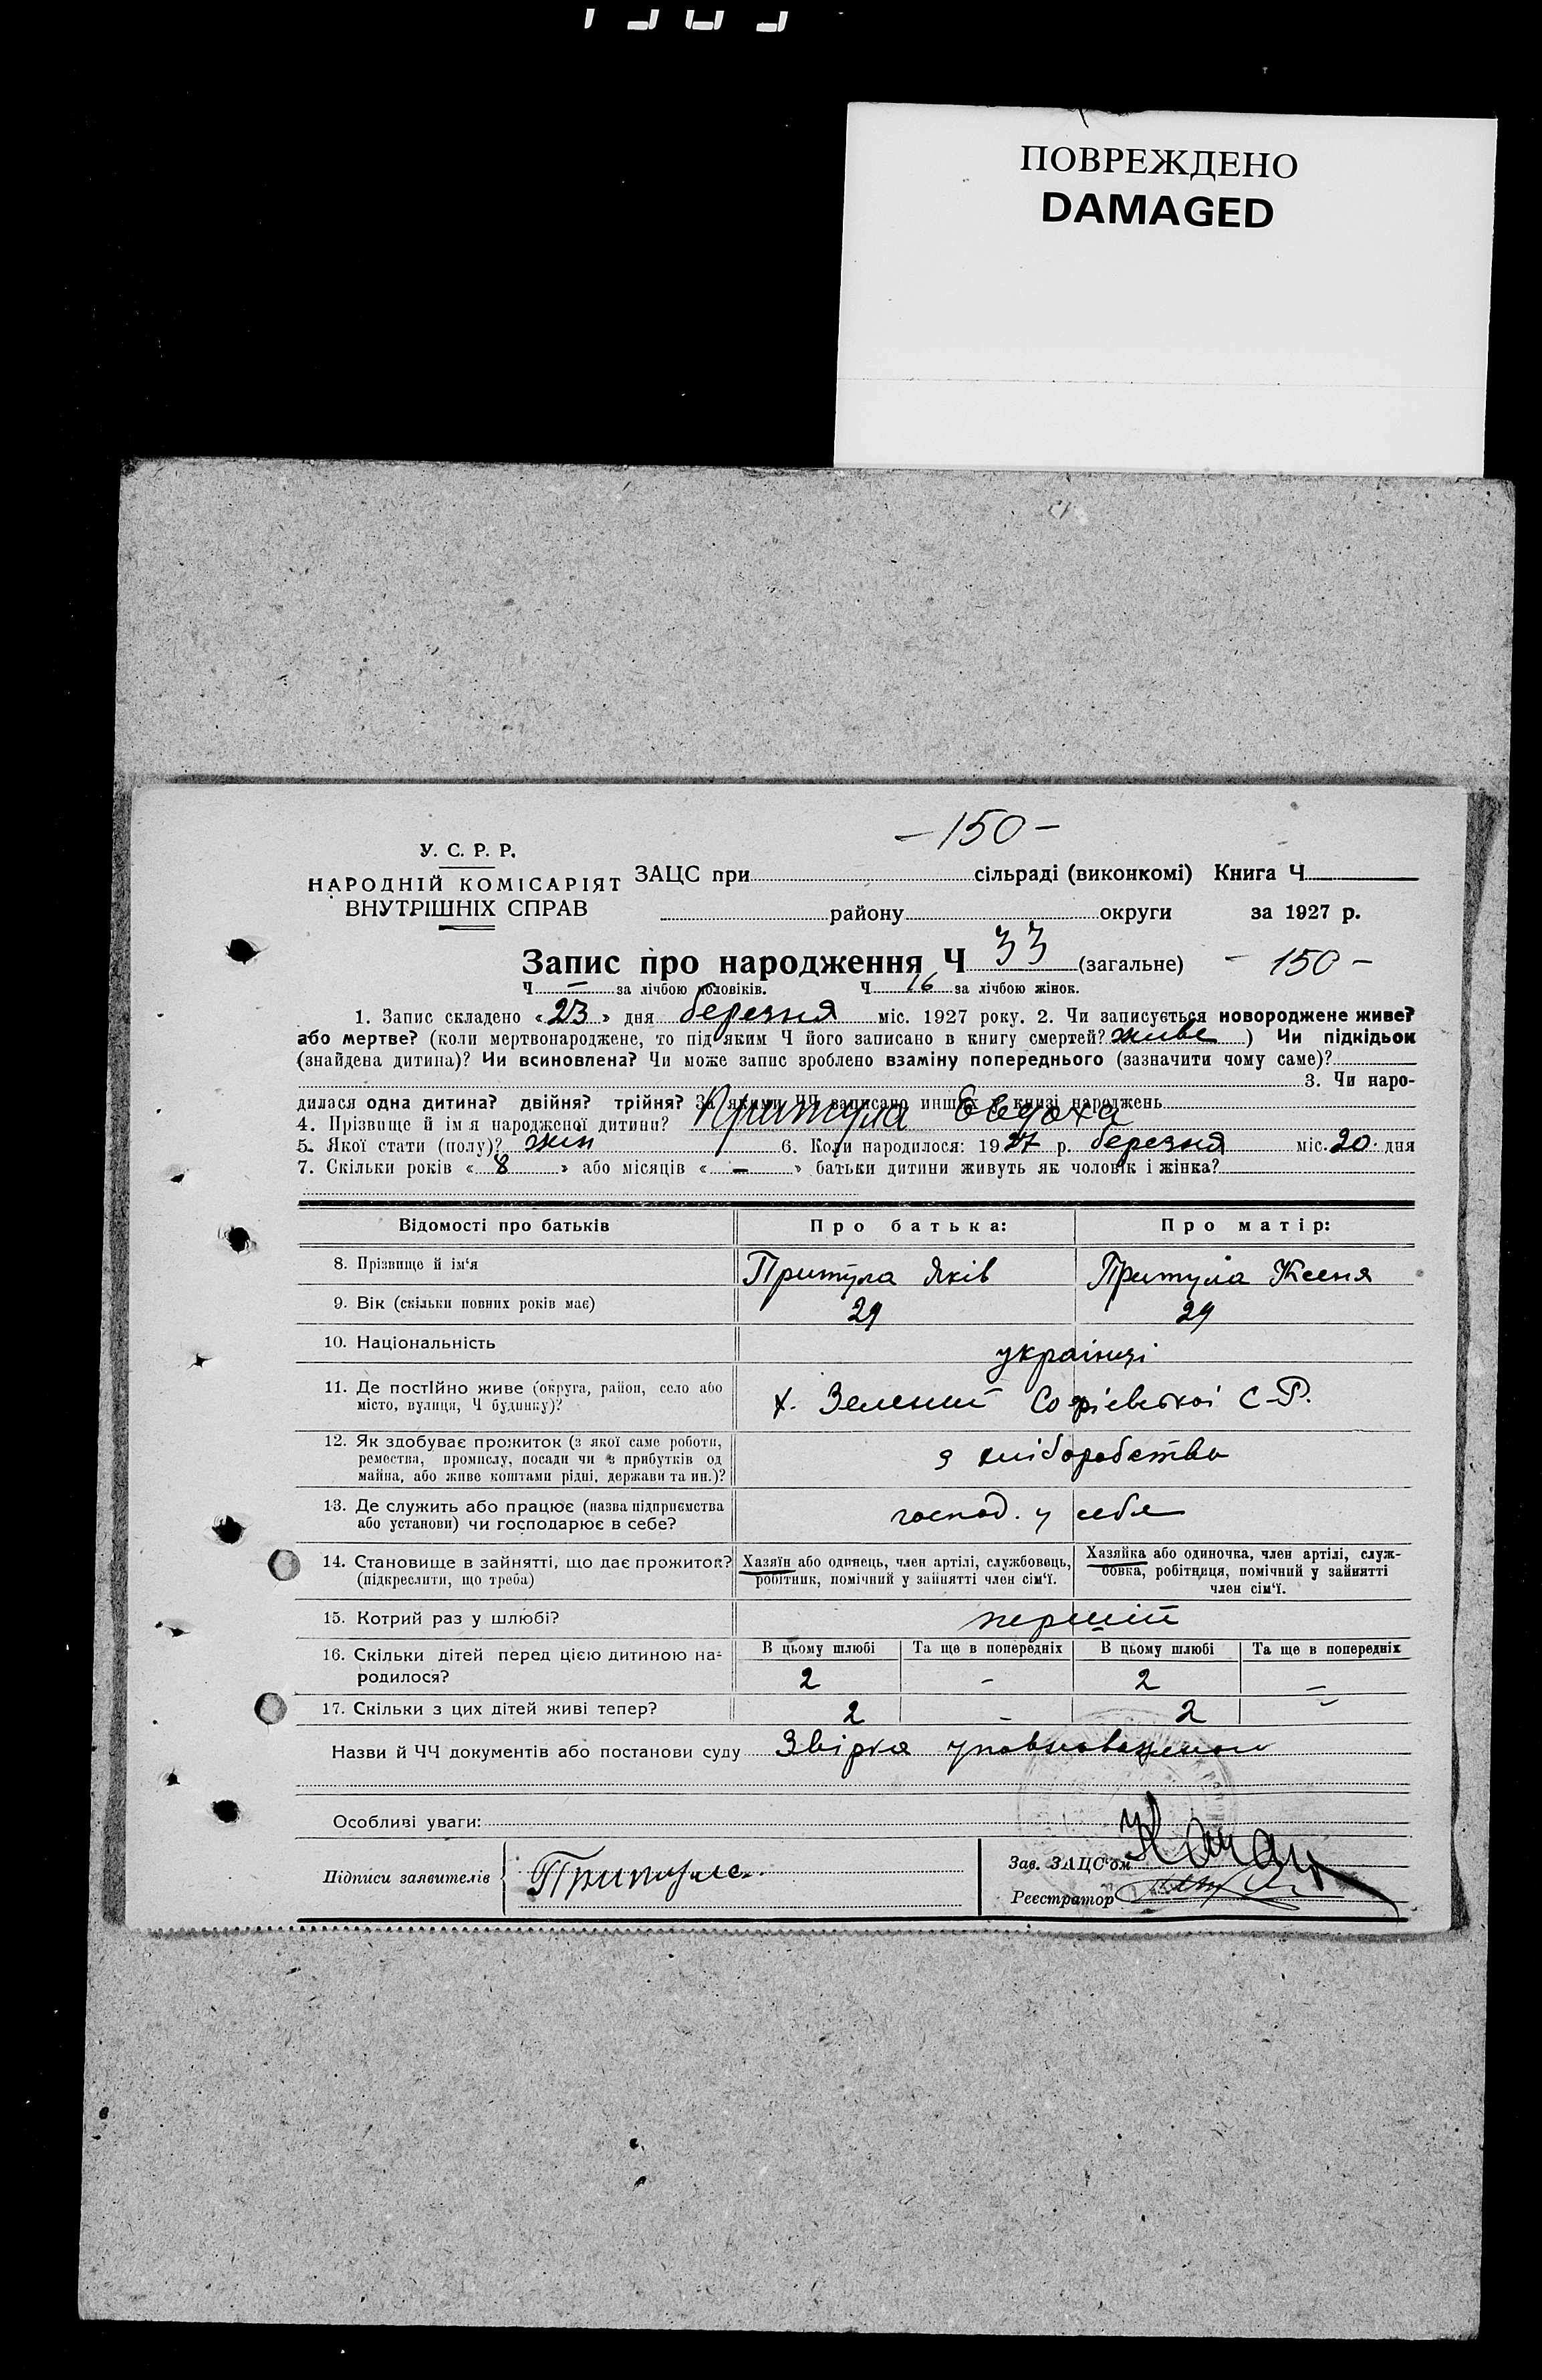 ПОВРЕЖДЕНО
DAMAGED
- 150 -
У. С. Р. Р.
НАРОДНІЙ КОМІСАРІЯТ
ВНУТРІШНІХ СПРАВ
ЗАЦС при сільраді (виконкомі) Книга Ч
району округи за 1927 р.
Запис про народження Ч 33 (загальне) - 150 -
Ч — за лічбою чоловіків. Ч 16 за лічбою жінок.
1. Запис складено «23» дня березня міс. 1927 року. 2. Чи записується новороджене живе?
або мертве? (коли мертвонароджене, то під яким Ч його записано в книгу смертей? живе ) Чи підкідьок
(знайдена дитина)? Чи всиновлена? Чи може запис зроблено взаміну попереднього (зазначити чому саме)?
3. Чи наро-
дилася одна дитина? двійня? трійня? За якими ЧЧ записано инших в книзі народжень
4. Прізвище й ім я народженої дитини? Притула Евдоха
5. Якої стати (полу)? жін 6. Коли народилося: 1927 р. березня міс. 20 дня
7. Скільки років « 8 » або місяців « — » батьки дитини живуть як чоловік і жінка?
Відомості про батьків Про батька: Про матір:
8. Прізвище й ім‘я Притула Яків Притула Ксеня
9. Вік (скільки повних років має) 29 29
10. Національність українці
11. Де постІйно живе (округа, район, село або
місто, вулиця, Ч будинку)? х. Зелений Софієвської С-Р.
12. Як здобуває прожиток (з якої саме роботи,
ремества, промислу, посади чи з прибутків од
майна, або живе коштами рідні, держави та ин.)? з хліборобства
13. Де служить або працює (назва підприємства
або установи) чи господарює в себе? господ. у себя
14. Становище в зайнятті, що дає прожиток?
(підкреслити, що треба)
Хазяїн або одинець, член артілі, службовець,
робітник, помічний у зайнятті член сім‘ї.
Хазяйка або одиночка, член артілі, служ-
бовка, робітниця, помічний у зайнятті
член сім‘ї.
15. Котрий раз у шлюбі? перший
16. Скільки дітей перед цією дитиною на-
родилося?
В цьому шлюбі Та ще в попередніх В цьому шлюбі Та ще в попередніх
2 - 2 -
17. Скільки з цих дітей живі тепер? 2 - 2 -
Назви й ЧЧ документів або постанови суду Звірка
Особливі уваги:
Підписи заявителів Притула
Зав. ЗАЦС‘ом
Реєстратор